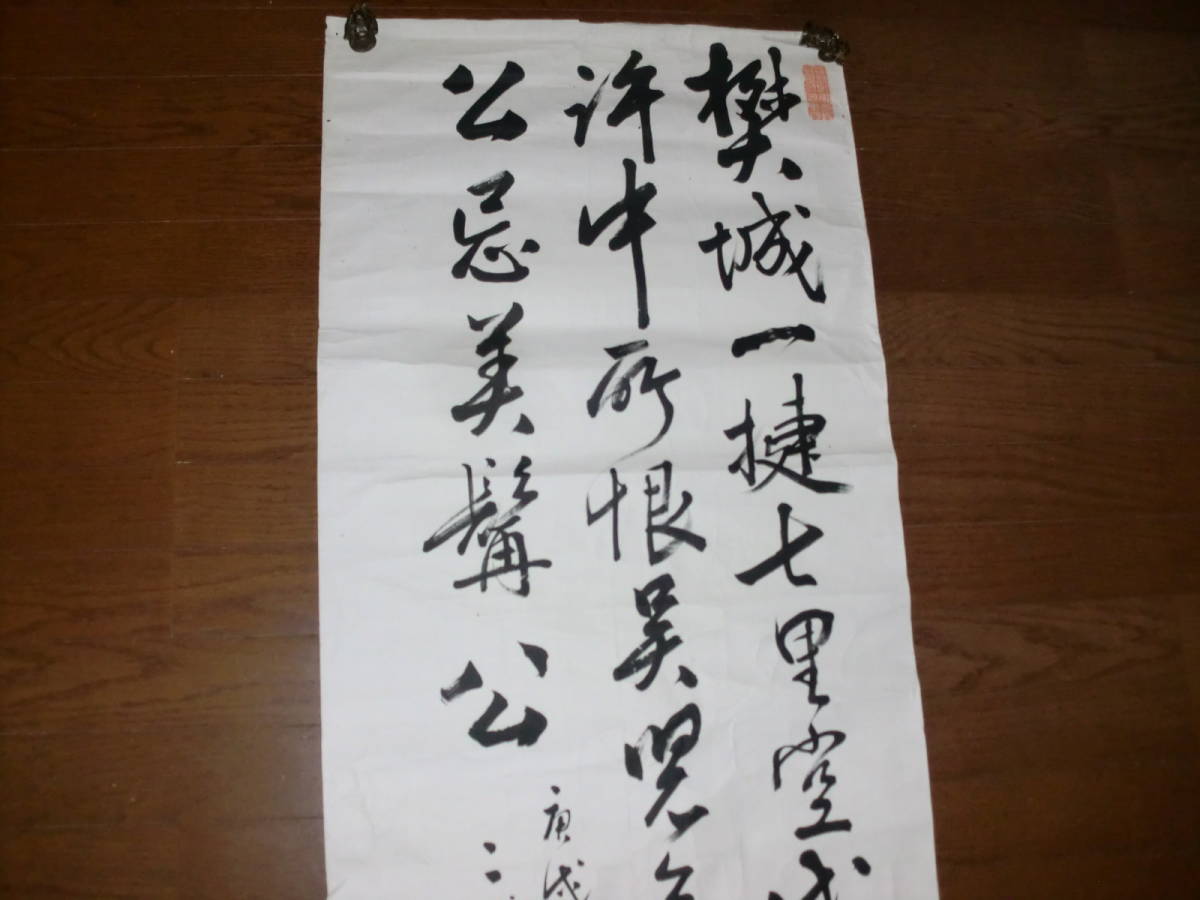 樊城一捷七空
許中所恨吴児
公忌美髯公
庚戌